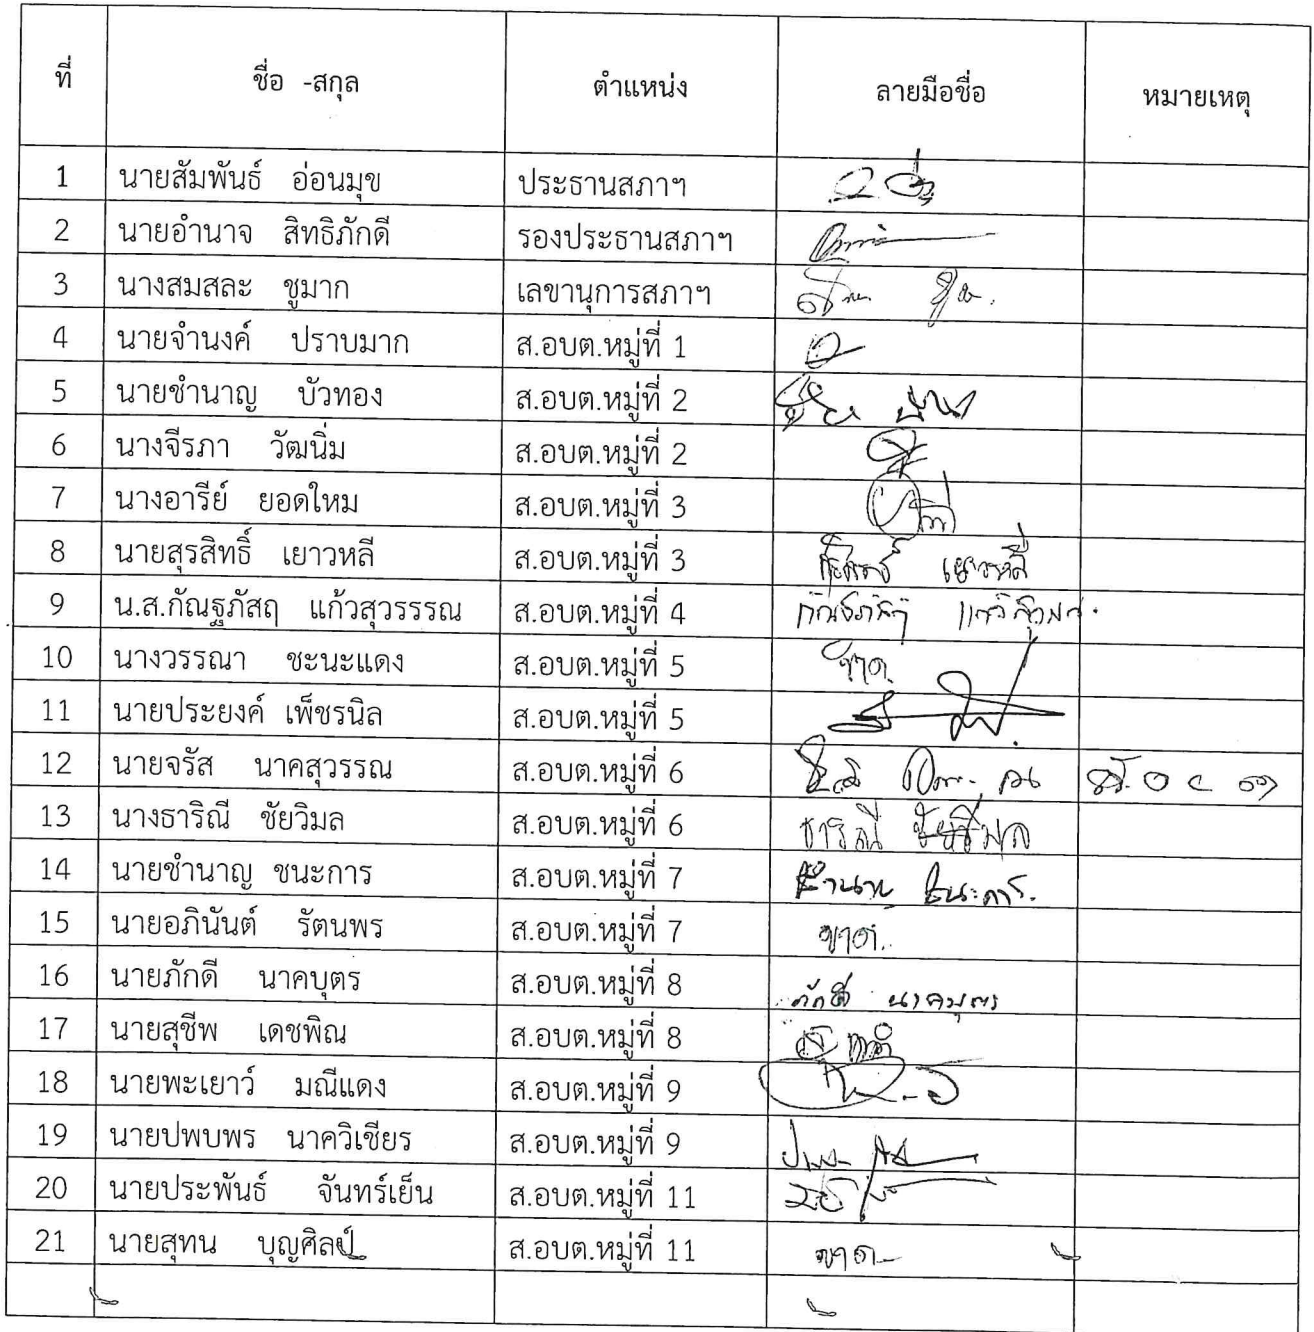 ที่ ชื่อ -สกุล ตำแหน่ง ลายมือชื่อ หมายเหตุ
1 นายสัมพันธ์ อ่อนมุข ประธานสภาฯ
2 นายอำนาจ สิทธิภักดี รองประธานสภาฯ
3 นางสมสละ ชูมาก เลขานุการสภาฯ
4 นายจำนงค์ ปราบมาก ส.อบต.หมู่ที่ 1
5 นายชำนาญ บัวทอง ส.อบต.หมู่ที่ 2
6 นางจีรภา วัฒนิ่ม ส.อบต.หมู่ที่ 2
7 นางอารีย์ ยอดใหม ส.อบต.หมู่ที่ 3
8 นายสุรสิทธิ์ เยาวหลี ส.อบต.หมู่ที่ 3 เยาวหลี
9 น.ส.กัณฐภัสฤ แก้วสุวรรรณ ส.อบต.หมู่ที่ 4
10 นางวรรณา ชะนะแดง ส.อบต.หมู่ที่ 5 ขาด
11 นายประยงค์ เพ็ชรนิล ส.อบต.หมู่ที่ 5
12 นายจรัส นาคสุวรรณ ส.อบต.หมู่ที่ 6
13 นางธาริณี ชัยวิมล ส.อบต.หมู่ที่ 6 ธาริณี ชัยวิมล
14 นายชำนาญ ชนะการ ส.อบต.หมู่ที่ 7 ชำนาญ ชนะการ
15 นายอภินันต์ รัตนพร ส.อบต.หมู่ที่ 7 ขาด
16 นายภักดี นาคบุตร ส.อบต.หมู่ที่ 8 ภักดี นาคบุตร
17 นายสุชีพ เดชพิณ ส.อบต.หมู่ที่ 8
18 นายพะเยาว์ มณีแดง ส.อบต.หมู่ที่ 9
19 นายปพบพร นาควิเชียร ส.อบต.หมู่ที่ 9
20 นายประพันธ์ จันทร์เย็น ส.อบต.หมู่ที่ 11
21 นายสุทน บุญศิลป์ ส.อบต.หมู่ที่ 11 ขาด